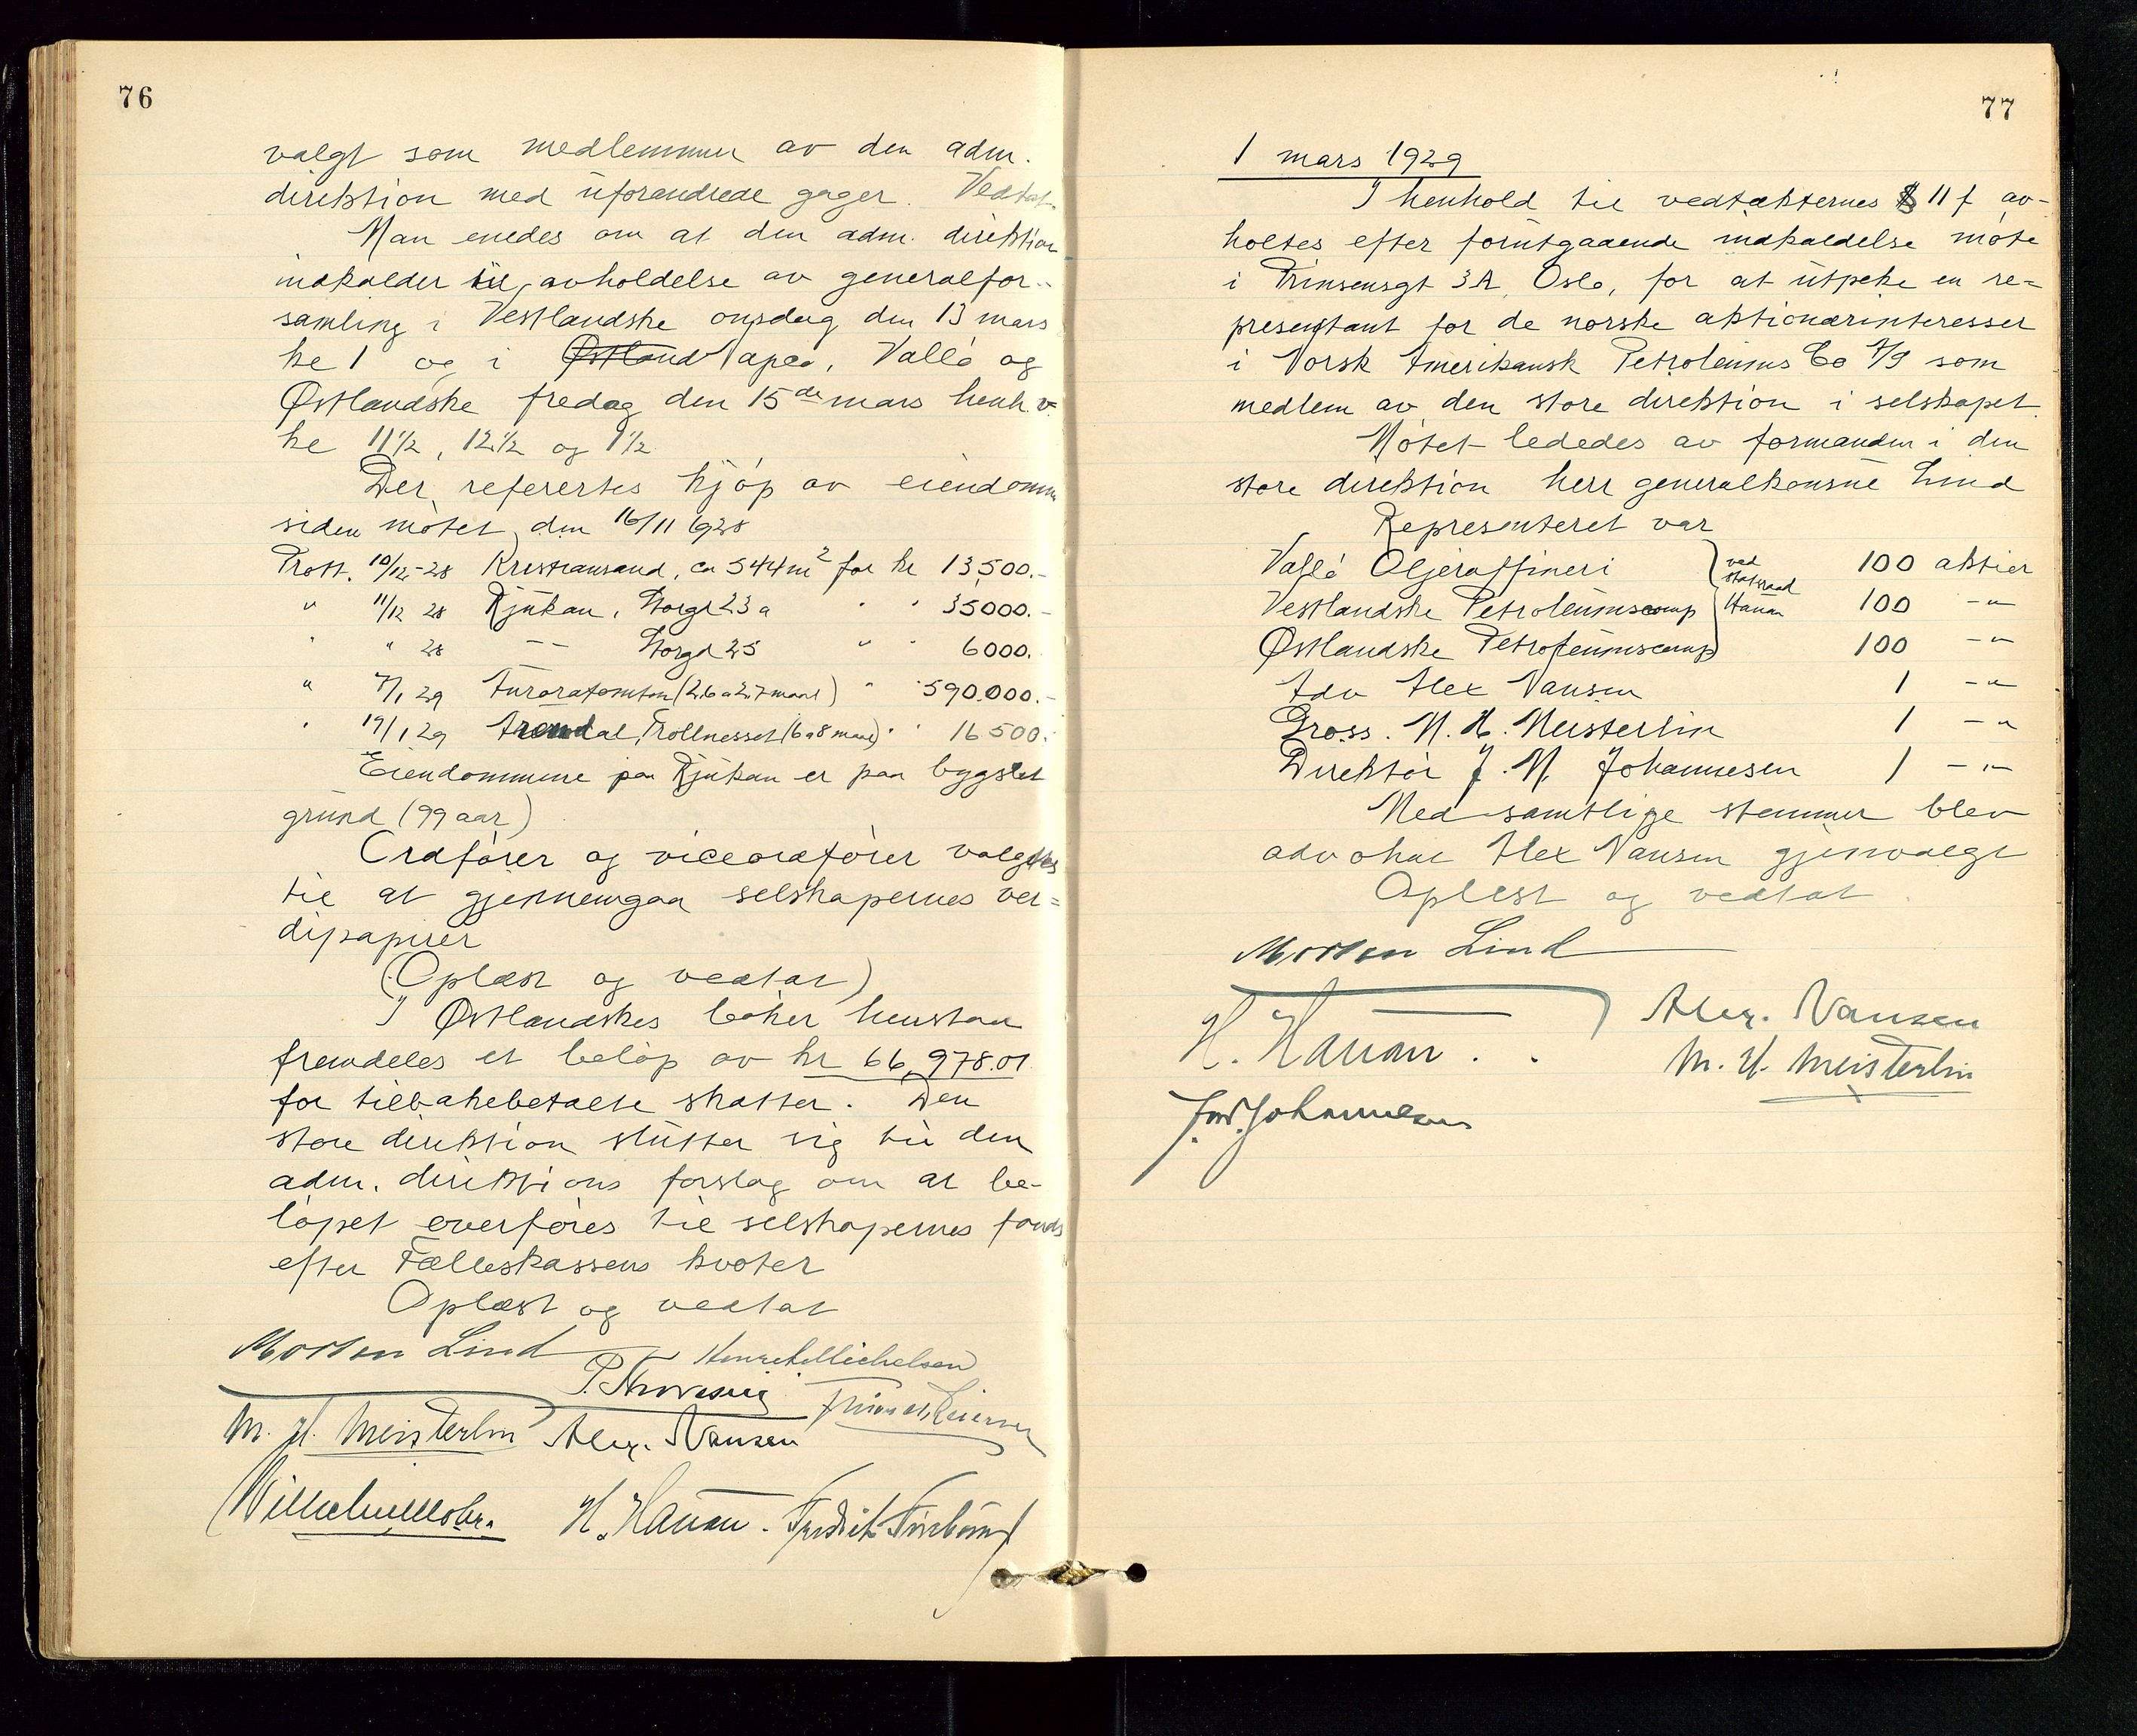 76
valgt som medlemmer av den adm.
direktion med uforandrede gager. Vedtat.
Man enedes om at den adm. direktion
indkalder til avholdelse av generalfor-
samling i Vestlandske onsdag den 13 mars
kl 1 og i Østland Napco, Vallö og
Østlandske fredag den 15de mars henh.v.
kl 11½, 12½ og 1½
Der refertes kjöp av eiendomme
siden mötet den 16/11 1928
Prott. 10/12-28 Kristiansand, ca 544 m2 for kr 13,500.-
" 11/12 28 Rjukan, Storgt 23a " " 35,000.-
" " 28 -"- Storgd 25 " " 6000.
" 7/1 29 Furoratomten (2.6 a 2.7 maal) " " 590.000.-
" 19/1 29 Arendal, Trollnesset (6 a 8 maal) " " 16500.
Eiendommene paa Rjukan er paa bygslet
grund (99 aar)
Ordförer og viceordförer valgtes
til at gjennemgaa selskapernes ver=
dipapirer
(Oplæst og vedtat)
I Østlandskes böker henstaar
fremdeles et belöp av kr 66,978.01
for tilbakebetalte skatter. Den
store direktion slutter sig til den
adm. direktions forslag om at be-
löpet overföres til selskapernes fonds
efter Fælleskassens kvoter
Oplæst og vedtat
Morten Lind
M. H. Meisterlin Alex. Nansen
H. Hauan.
77
1 mars 1929
I henhold til vedtækternes § 11 f av-
holtes efter forutgaaende indkaldelse möte
i Prinsensgt 3A, Oslo, for at utpeke en re=
presentant for de norske aktionærinteresser
i Norsk Amerikansk Petroleums Co A/S som
medlem av den store direktion i selskapet.
Mötet lededes av formanden i den
store direktion herr generalkonsul Lind
Representeret var
Vallö Oljeraffineri } ved statsraad Hauan 100 aktier
Vestlandske Petroleumscomp 100 -"-
Østlandske Petroleumscomp 100 -"-
Adv Alex Nansen 1 -"-
Gross. M. H. Meisterlin 1 -"-
Direktör J. W. Johannesen 1 -"-
Med samtlige stemmer blev
advokat Alex Nansen gjenvalgt
Oplest og vedtat.
Morten Lind
H. Hauan. Alex. Nansen
M. H. Meisterlin
J.W. Johannesen